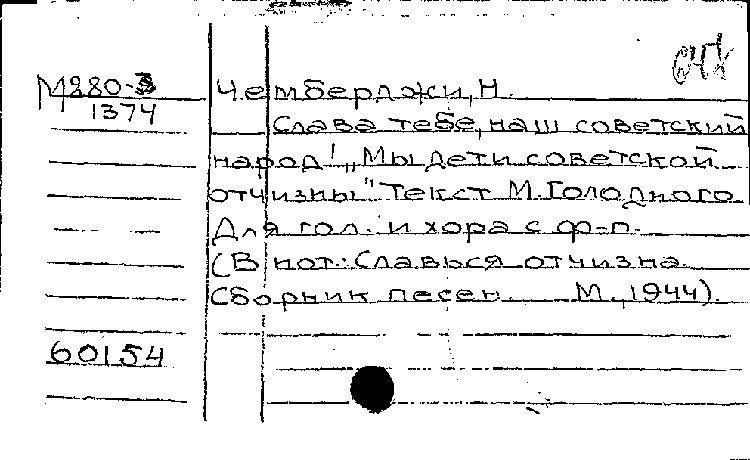 М280-3 Чемберджи, Н.
1374
Слава тебе, наш советский
народ! „Мы дети советской
отчизны" Текст М. Голодного
Для гол. и хора с ф-п.
(В нот.: Славься отчизна.
Сборник песен. М., 1944).
60154